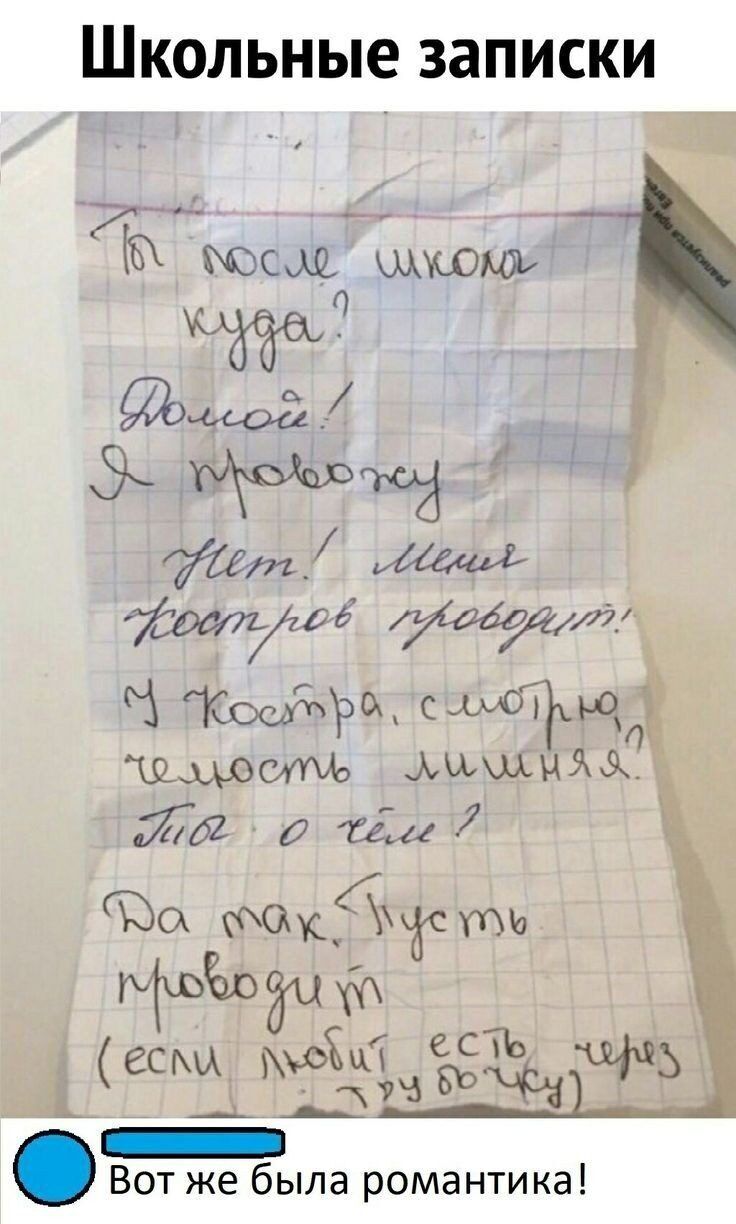 Школьные записки
Ты после школы
куда?
Домой!
Я провожу
Нет! Меня
Костров проводит!
У Костра, смотрю,
челюсть лишняя?
Ты о чём?
Да так. Пусть
проводит
(если любит есть через
трубочку)
Вот же была романтика!